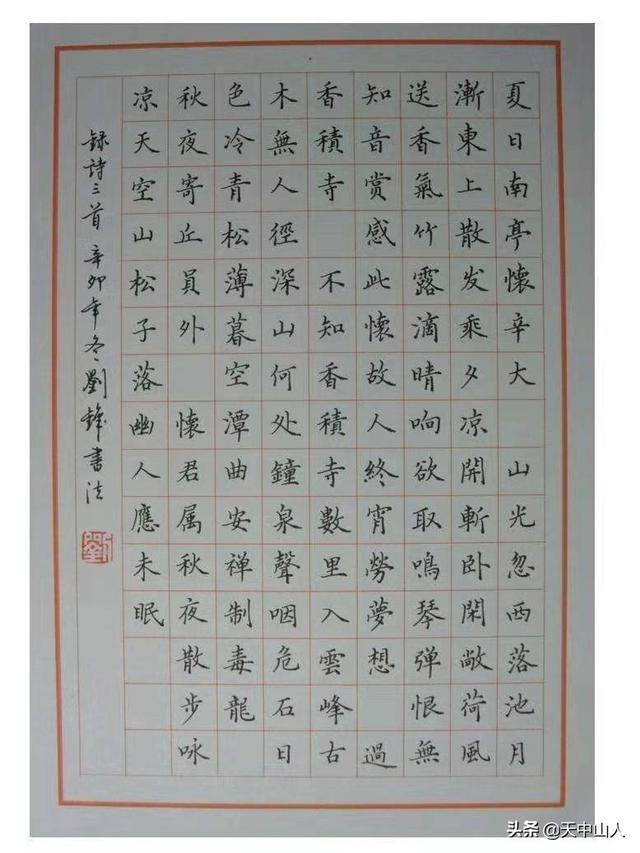 夏日南亭懷辛大 山光忽西落池月
漸東上散发乘夕凉開斬卧閑敞荷風
送香氣竹露滴晴响欲取鳴琴弹恨無
知音賞感此懷故人終宵勞夢想 過
香積寺 不知香積寺數里入雲峰古
木無人徑深山何处鐘泉聲咽危石日
色冷青松薄暮空潭曲安禅制毒龍
秋夜寄丘員外 懷君属秋夜散步咏
凉天空山松子落幽人應未眠
録詩三首 辛卯年冬 劉鋒書法
劉
头条 @天中山人